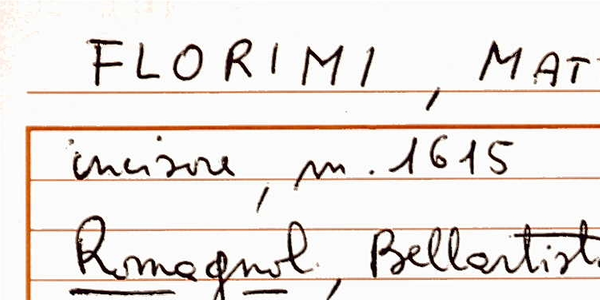 FLORIMI, MAT
incisore, m. 1615
Romagnol, Bellartist